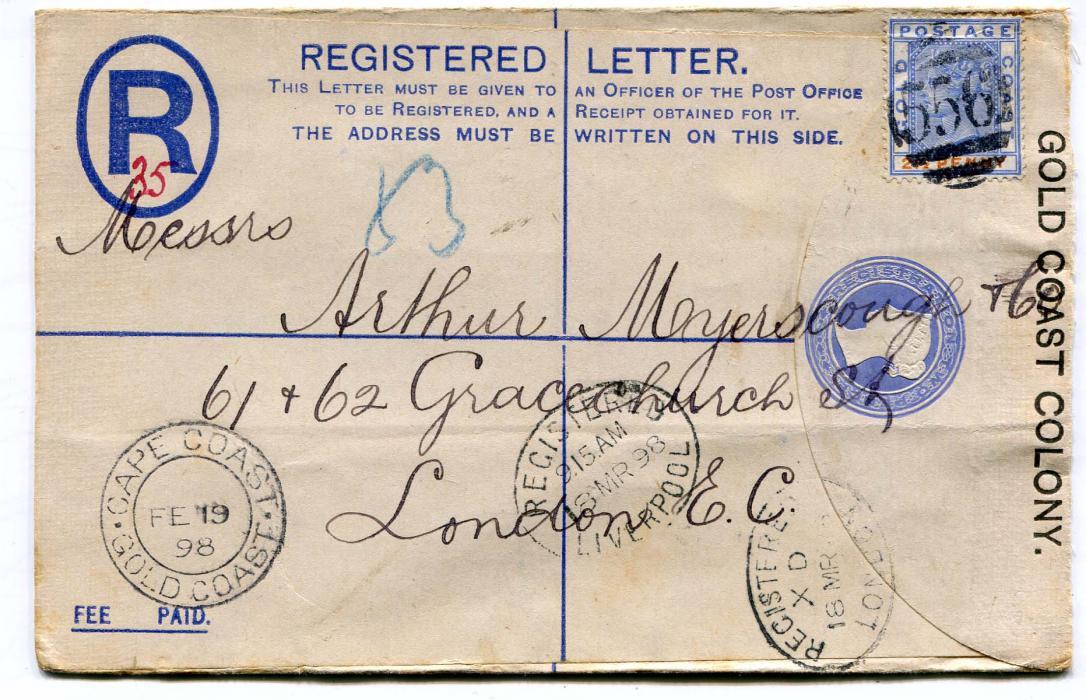 REGISTERED LETTER.
THIS LETTER MUST BE GIVEN TO AN OFFICER OF THE POST OFFICE
TO BE REGISTERED, AND A RECEIPT OBTAINED FOR IT.
THE ADDRESS MUST BE WRITTEN ON THIS SIDE.
R
35
POSTAGE
GOLD COAST
556
2½ PENNY
GOLD COAST COLONY.
Messrs
Arthur Myerscough & Co
61 & 62 Gracechurch St
London E.C.
CAPE COAST
FE 19
98
GOLD COAST
REGISTERED
9.15 AM
18 MR 98
LIVERPOOL
REGISTERED
X D
18 MR
LONDON
FEE PAID.